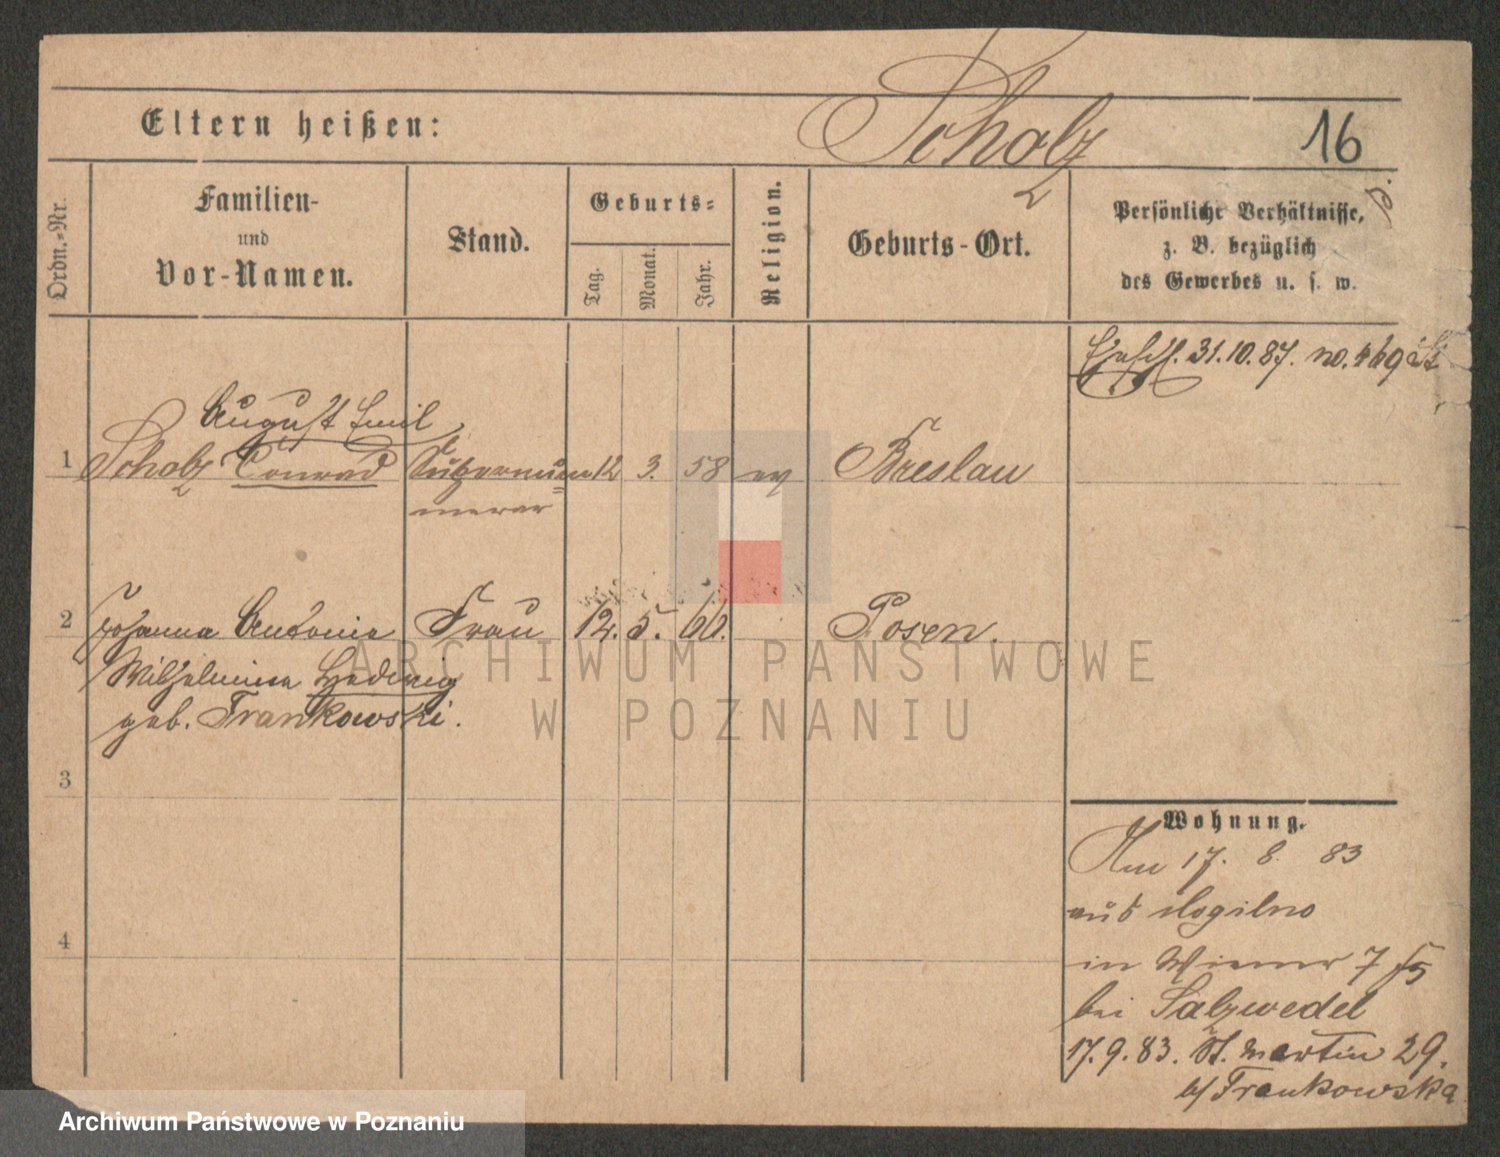 Scholz
16
Eltern heißen:
Ordn.-Nr.
Familien-
und
Vor-Namen.
Stand.
Geburts-
Tag.
Monat.
Jahr.
Religion.
Geburts-Ort.
Persönliche Verhältnisse,
z. B. bezüglich
des Gewerbes u. s. w.
31.10.87. no. 469
August Emil
1 Scholz Conrad Supernum= 12 3. 58 ev Breslau
merar
2 Johanna Antonie Frau 12. 5. 66. Posen.
Wilhelmine Hedwig
geb. Frankowski.
3
4
Wohnung.
Am 17. 8. 83
aus Mogilno
in Wiener 7
bei Salzwedel
17. 9. 83. St. Martin 29.
b/ Frankowska
ARCHIWUM PAŃSTWOWE
W POZNANIU
Archiwum Państwowe w Poznaniu